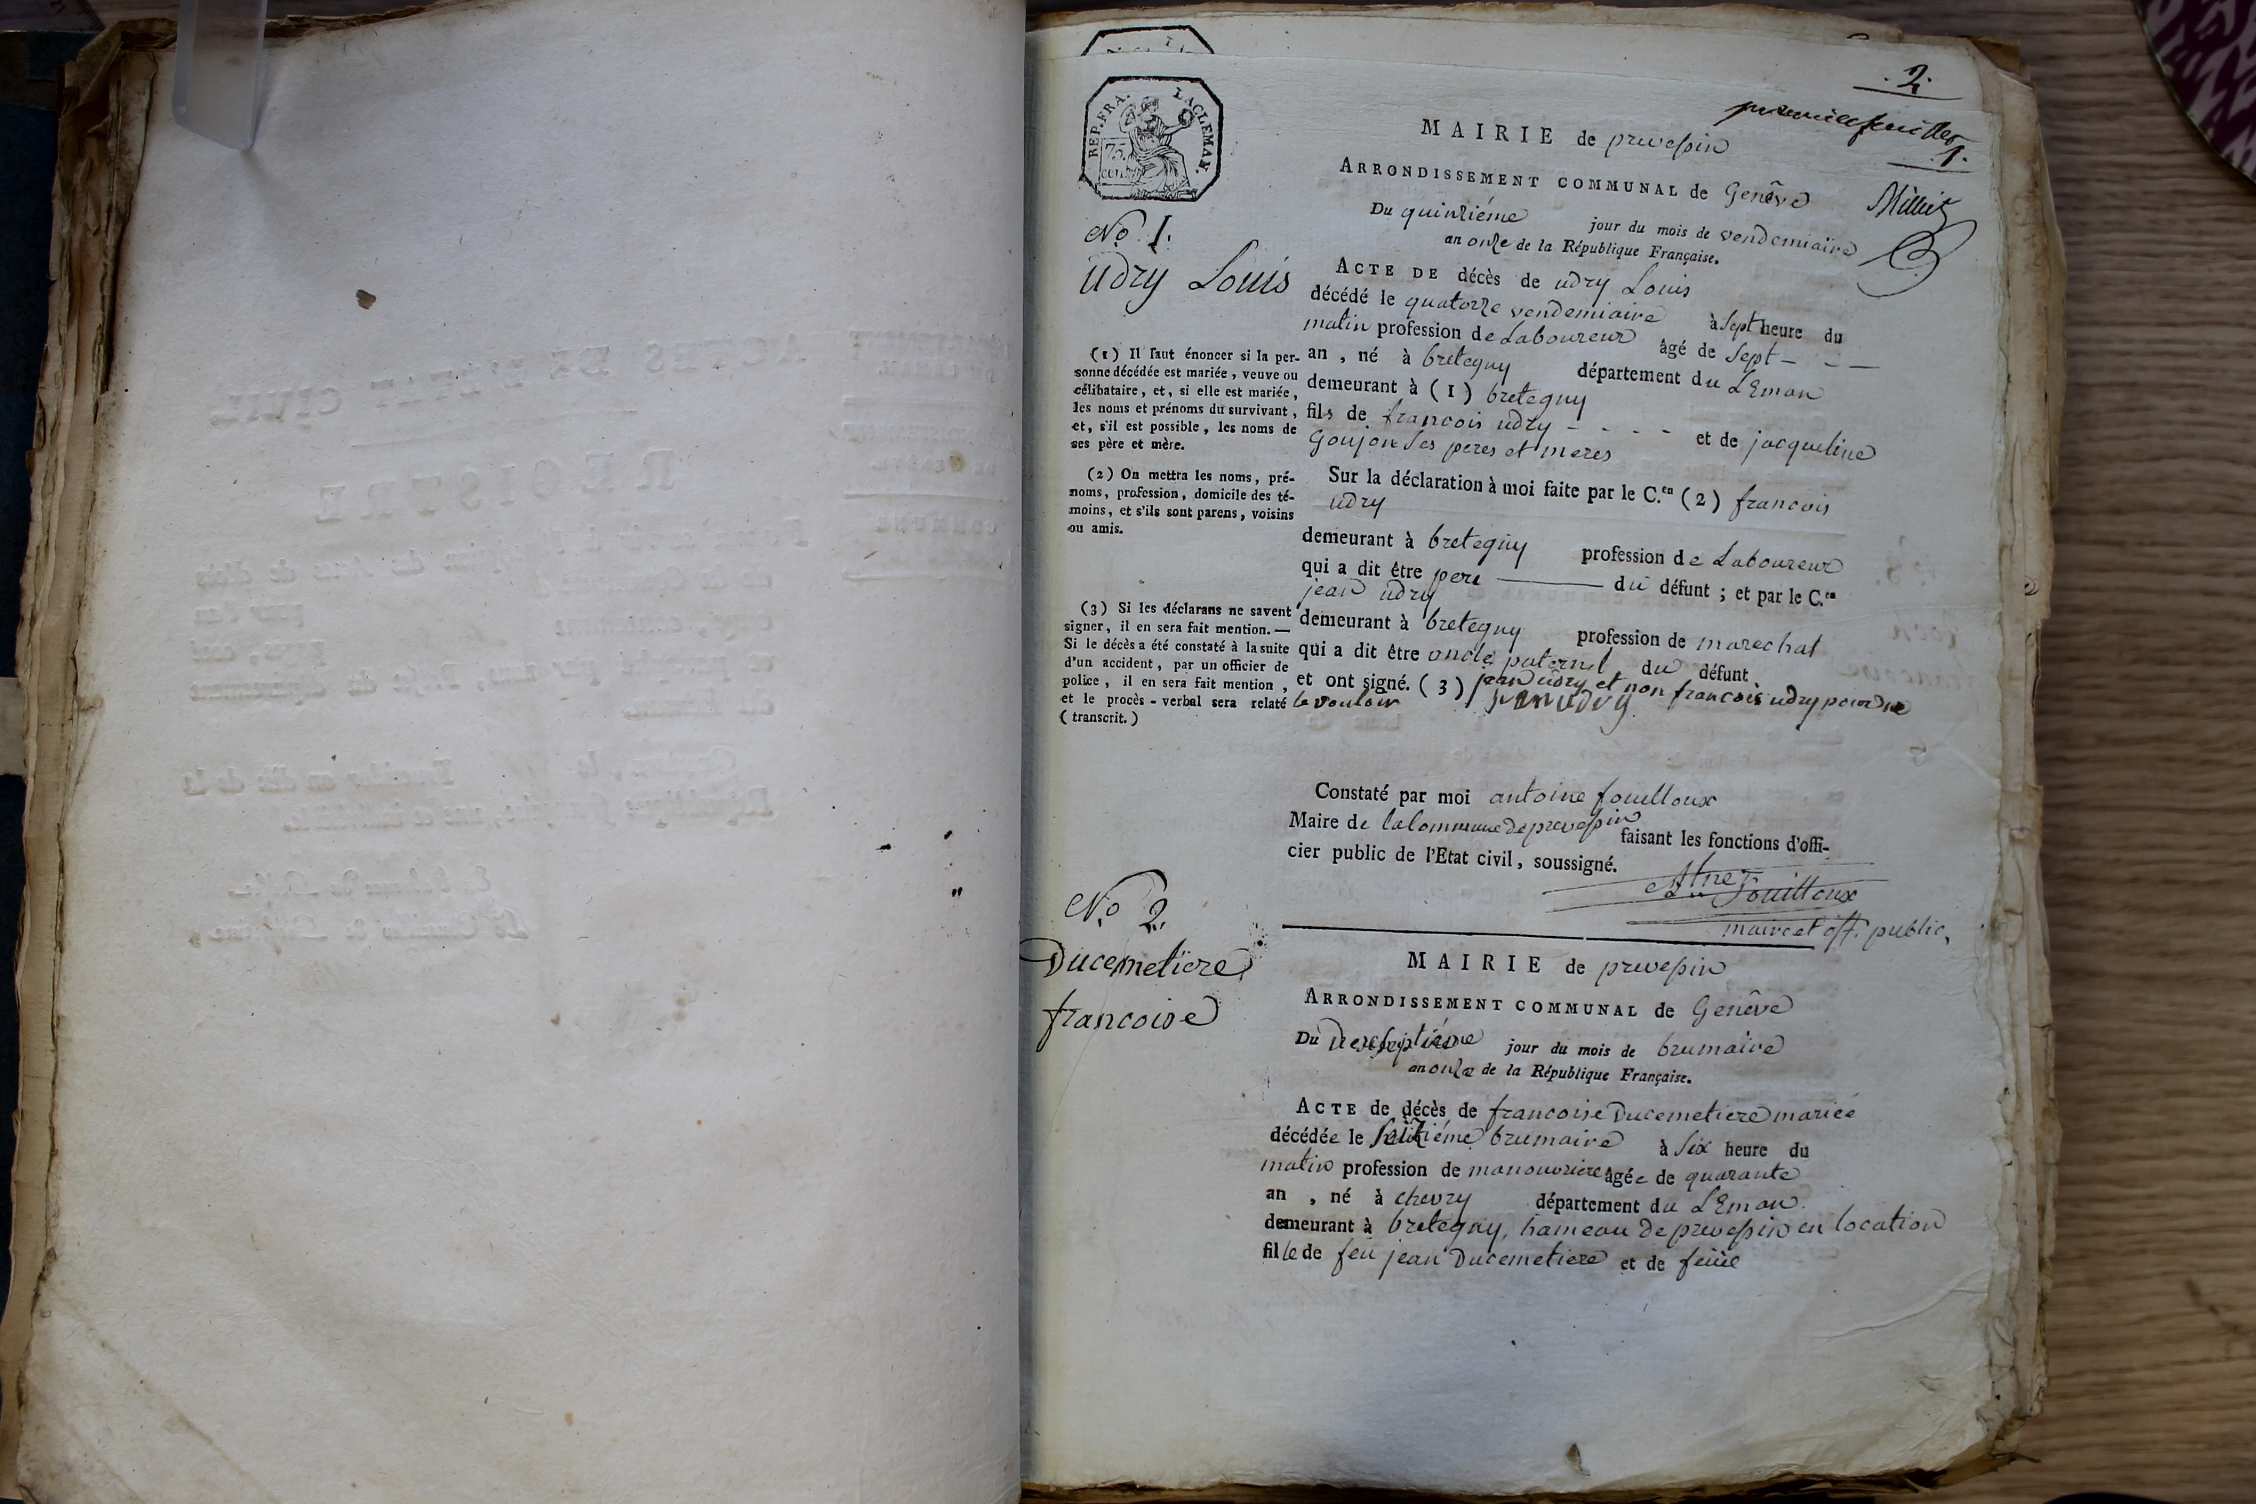 .2.
premier feuillet
.1.
Milliet
REP. FRA. LAC LEMAN.
75. cent.
MAIRIE de prevessin
ARRONDISSEMENT COMMUNAL de Genêve
Du quinziéme jour du mois de vendemiaire
an onze de la République Française.
No. 1.
udry Louis
ACTE DE décès de udry Louis
décédé le quatorze vendemiaire à sept heure du
matin profession de Laboureur âgé de sept - - -
an , né à bretegny département du LEman
demeurant à (1) bretegny
fils de francois udry - - - - et de jacqueline
Goujon ses peres et meres
Sur la déclaration à moi faite par le C.en (2) francois
udry
demeurant à bretegny profession de Laboureur
qui a dit être pere du défunt ; et par le C.en
jean udry
demeurant à bretegny profession de marechal
qui a dit être oncle paternel du défunt
et ont signé. (3) jean udry et non francois udry pour ne
le vouloir jean udry
(1) Il faut énoncer si la per-
sonne décédée est mariée, veuve ou
célibataire, et, si elle est mariée,
les noms et prénoms du survivant,
et, s'il est possible, les noms de
ses père et mère.
(2) On mettra les noms, pré-
noms, profession, domicile des té-
moins, et s'ils sont parens, voisins
ou amis.
(3) Si les déclarans ne savent
signer, il en sera fait mention. —
Si le décès a été constaté à la suite
d'un accident, par un officier de
police, il en sera fait mention,
et le procès-verbal sera relaté
(transcrit.)
Constaté par moi antoine fouilloux
Maire de la Commune de prevessin faisant les fonctions d'offi-
cier public de l'Etat civil, soussigné.
Atne Fouilloux
maire et off. public,
No. 2.
Ducemetiere
francoise
MAIRIE de prevessin
ARRONDISSEMENT COMMUNAL de Genêve
Du dixseptiéme jour du mois de brumaire
an onze de la République Française.
ACTE de décès de francoise Ducemetiere mariée
décédée le seiziéme brumaire à six heure du
matin profession de manouvriere âgée de quarante
an , né à chevry département du LEman
demeurant à bretegny, hameau de prevessin en location
fille de feu jean Ducemetiere et de feüe